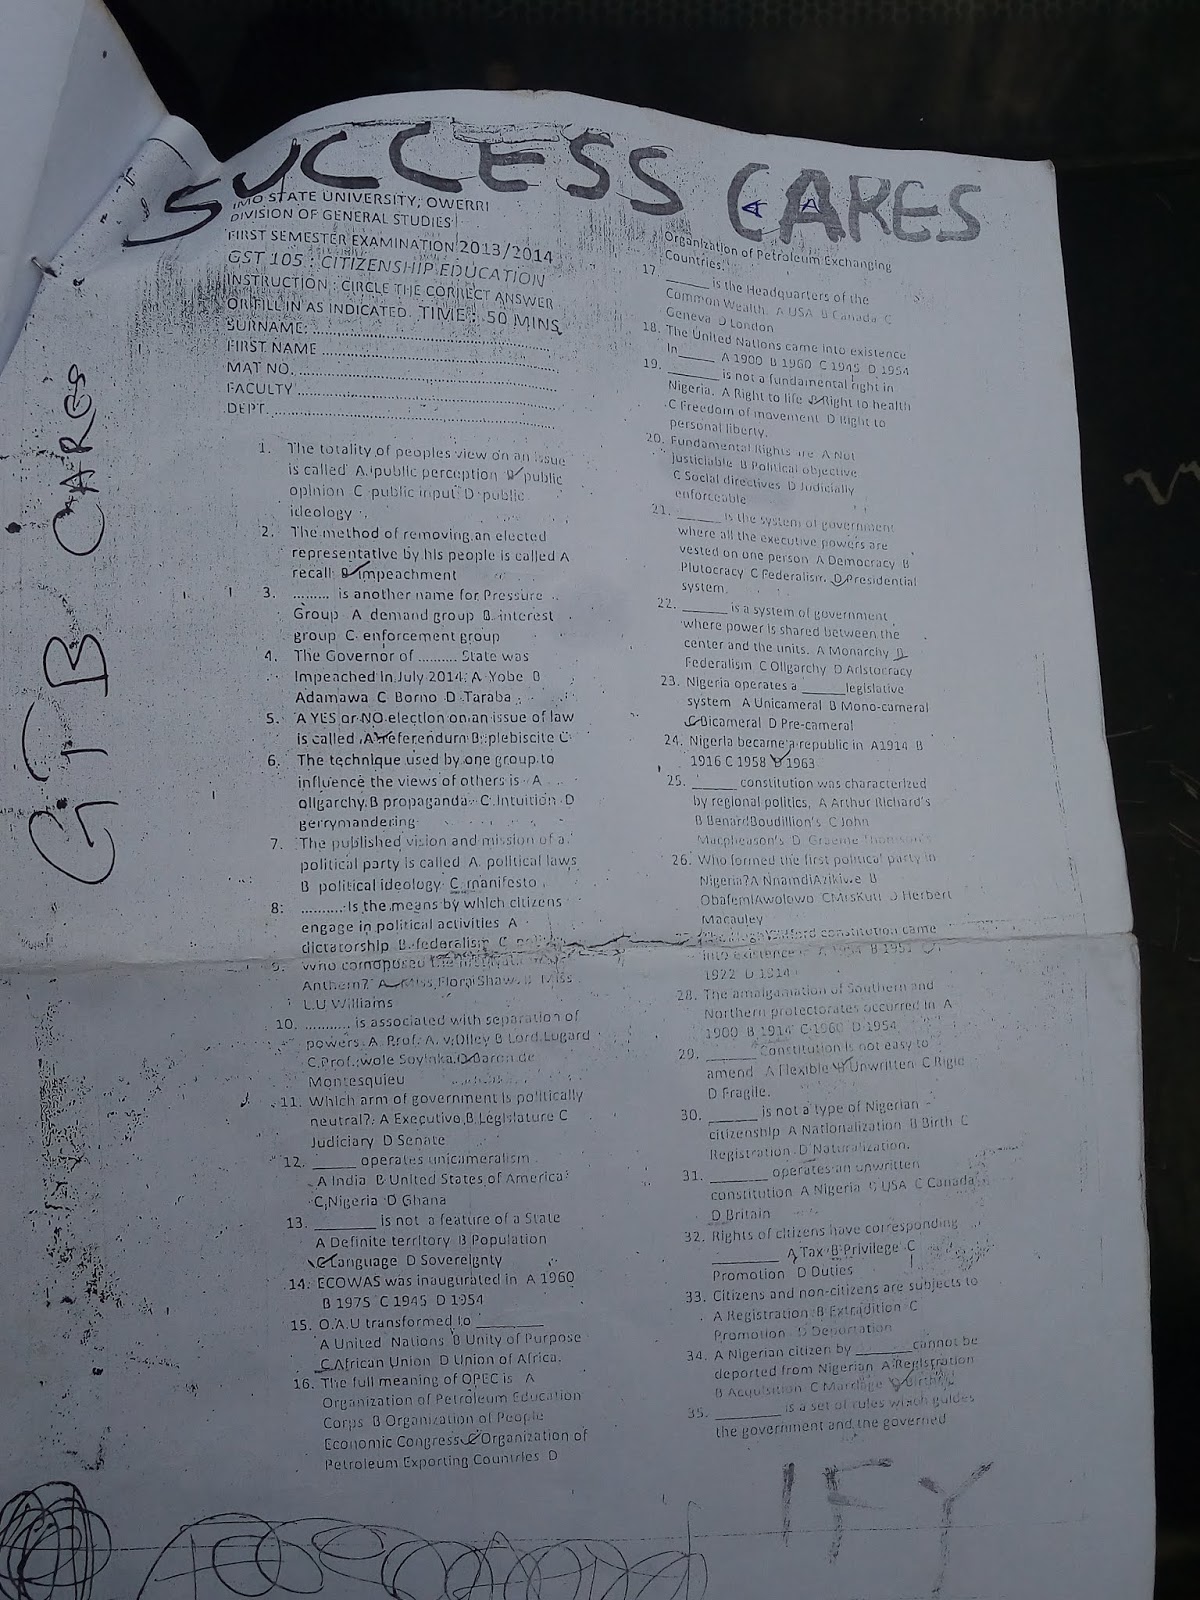 SUCCESS CARES
GTB CARES
IMO STATE UNIVERSITY, OWERRI
DIVISION OF GENERAL STUDIES
FIRST SEMESTER EXAMINATION 2013/2014
GST 105 : CITIZENSHIP EDUCATION
INSTRUCTION : CIRCLE THE CORRECT ANSWER
OR FILL IN AS INDICATED. TIME : 50 MINS
SURNAME:
FIRST NAME
MAT NO.
FACULTY
DEPT.
1. The totality of peoples view on an issue
is called A. public perception B public
opinion C public input D public
ideology
2. The method of removing an elected
representative by his people is called A
recall B impeachment
3. ......... is another name for Pressure
Group A demand group B. interest
group C. enforcement group
4. The Governor of ......... State was
Impeached in July 2014. A Yobe B
Adamawa C Borno D Taraba
5. A YES or NO election on an issue of law
is called A referendum B plebiscite C
6. The technique used by one group to
influence the views of others is A
oligarchy B propaganda C. Intuition D
gerrymandering
7. The published vision and mission of a
political party is called A. political laws
B political ideology C. manifesto
8: .......... is the means by which citizens
engage in political activities A
dictatorship B federalism C
9. Who comoposed the
Anthem? A Miss Flora Shaw B Miss
L.U Williams
10. .......... is associated with separation of
powers A Prof. A. v. Dicey B Lord Lugard
C Prof. wole Soyinka D Baron de
Montesquieu
11. Which arm of government is politically
neutral? A Executive B Legislature C
Judiciary D Senate
12. _____ operates unicameralism
A India B United States of America
C Nigeria D Ghana
13. _______ is not a feature of a State
A Definite territory B Population
C Language D Sovereignty
14. ECOWAS was inaugurated in A 1960
B 1975 C 1945 D 1954
15. O.A.U transformed to ________
A United Nations B Unity of Purpose
C African Union D Union of Africa.
16. The full meaning of OPEC is A
Organization of Petroleum Education
Corps B Organization of People
Economic Congress C Organization of
Petroleum Exporting Countries D
Organization of Petroleum Exchanging
Countries.
17. _____ is the Headquarters of the
Common Wealth. A USA B Canada C
Geneva D London
18. The United Nations came into existence
In_____ A 1900 B 1960 C 1945 D 1954
19. ______ is not a fundamental right in
Nigeria. A Right to life B Right to health
C Freedom of movement D Right to
personal liberty.
20. Fundamental Rights are A Not
justiciable B Political objective
C Social directives D Judicially
enforceable
21. _____ is the system of government
where all the executive powers are
vested on one person A Democracy B
Plutocracy C Federalism. D Presidential
system.
22. _____ is a system of government
where power is shared between the
center and the units. A Monarchy B
Federalism C Oligarchy D Aristocracy
23. Nigeria operates a _____legislative
system A Unicameral B Mono-cameral
C Bicameral D Pre-cameral
24. Nigeria became a republic in A1914 B
1916 C 1958 D 1963
25. _____ constitution was characterized
by regional politics, A Arthur Richard's
B BenardBoudillion's C John
Macpheason's D Graeme Thomson's
26. Who formed the first political party in
Nigeria?A NnamdiAzikiwe B
ObafemiAwolowo CMrsKuti D Herbert
Macauley
constitution came
into existence in A 1954 B 1951 C
1922 D 1914
28. The amalgamation of Southern and
Northern protectorates occurred in A
1900 B 1914 C 1960 D 1954
29. ______ Constitution is not easy to
amend A Flexible B Unwritten C Rigid
D Fragile.
30. ______ is not a type of Nigerian
citizenship A Nationalization B Birth C
Registration D Naturalization.
31. _______ operates an unwritten
constitution A Nigeria B USA C Canada
D Britain
32. Rights of citizens have corresponding
________ A Tax B Privilege C
Promotion D Duties
33. Citizens and non-citizens are subjects to
A Registration B Extradition C
Promotion D Deportation
34. A Nigerian citizen by _______cannot be
deported from Nigerian A Registration
B Acquisition C Marriage D Birth
35. ________ is a set of rules which guides
the government and the governed
IFY